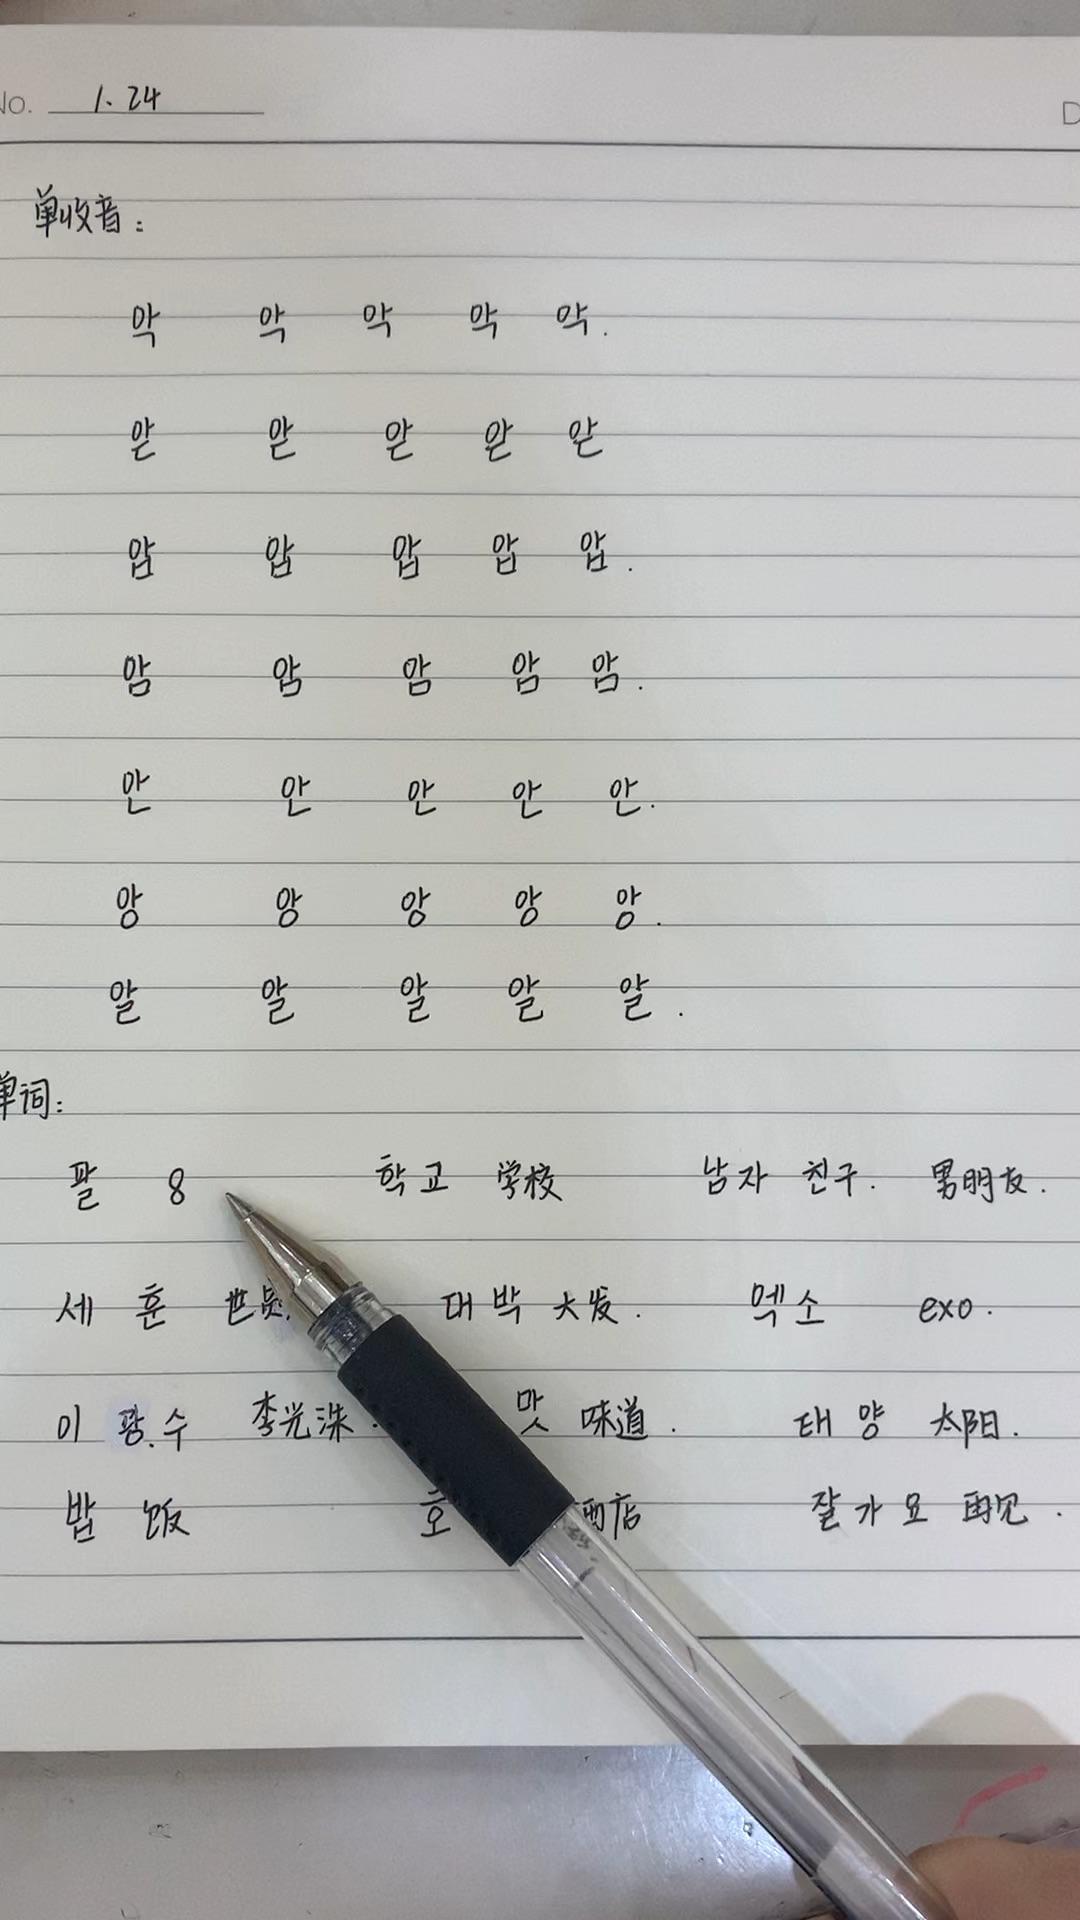 No. 1.24
D
单收音:
악 악 악 악 악.
앋 앋 앋 앋 앋
압 압 압 압 압.
암 암 암 암 암.
안 안 안 안 안.
앙 앙 앙 앙 앙.
알 알 알 알 알.
单词:
팔 8 학교 学校 남자 친구. 男朋友.
세 훈 世勋 대박 大发. 엑소 exo.
이 광.수 李光洙. 맛 味道. 태양 太阳.
밥 饭 호 酒店 잘가요 再见.